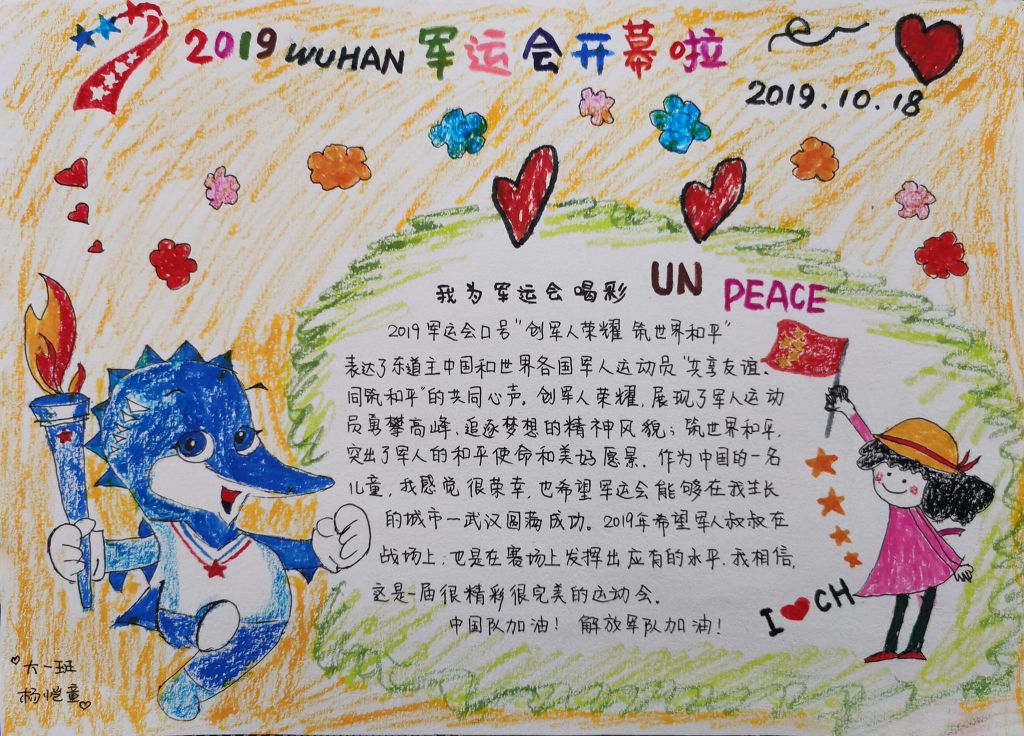 2019 WUHAN 军运会开幕啦
2019.10.18
UN PEACE
我为军运会喝彩
2019军运会口号"创军人荣耀 筑世界和平"
表达了东道主中国和世界各国军人运动员"共享友谊、
同筑和平"的共同心声。创军人荣耀,展现了军人运动
员勇攀高峰、追逐梦想的精神风貌;筑世界和平,
突出了军人的和平使命和美好愿景。作为中国的一名
儿童,我感觉很荣幸,也希望军运会能够在我生长
的城市一武汉圆满成功。2019年希望军人叔叔在
战场上,也是在赛场上发挥出应有的水平.我相信,
这是一届很精彩很完美的运动会。
中国队加油! 解放军队加油!
I ❤ CH
大一班
杨恺童